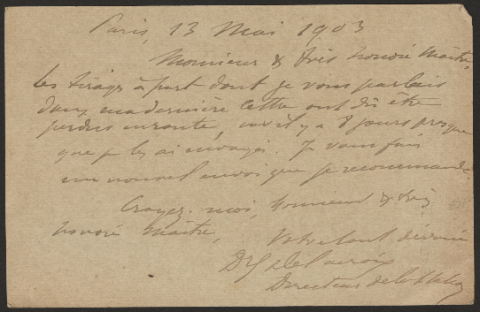 Paris, 13 Mai 1903
Monsieur & très honoré Maître,
Les tirages à part dont je vous parlais
dans ma dernière lettre ont dû être
perdus en route, car il y a 8 jours presque
que je les ai envoyés. Je vous fais
un nouvel envoi que je recommande.
Croyez-moi, Monsieur & très
honoré Maître,
Votre tout dévoué
Directeur de la